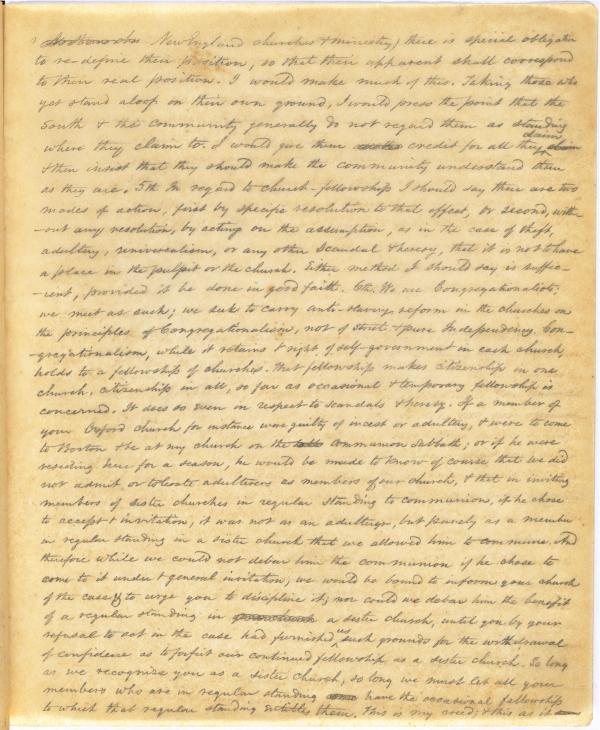 New England churches & ministry) there is special obligation
to re-define their position, so that their apparent shall correspond
to their real position. I would make much of this. Taking those who
yet stand aloof on their own ground, I would press the point that the
South & the community generally do not regard them as standing
where they claim to. I would give them credit for all they claim
& then insist that they should make the community understand them
as they are. 5th In regard to church-fellowship I should say there are two
modes of action, first by specific resolution to that effect, or second, with-
-out any resolution, by acting on the assumption, as in the case of theft,
adultery, universalism, or any other scandal & heresy, that it is not to have
a place in the pulpit or the church. Either method I should say is suffic-
-ient, provided it be done in good faith. 6th. We are Congregationalists;
we meet as such; we seek to carry anti-slavery reform in the churches on
the principles of Congregationalism, not of strict & pure Independency. Con-
gregationalism, while it retains & right of self-government in each church,
holds to a fellowship of churches. That fellowship makes citizenship in one
church, citizenship in all, so far as occasional & temporary fellowship is
concerned. It does so even in respect to scandals & heresy. If a member of
your Oxford church for instance was guilty of incest or adultery, & were to come
to Boston & be at my church on the Communion Sabbath; or if he were
residing here for a season, he would be made to know of course that we did
not admit or tolerate adulterers as members of our church, & that in inviting
members of sister churches in regular standing to communion, if he chose
to accept & invitation, it was not as an adulterer, but purely as a member
in regular standing in a sister church that we allowed him to commune. And
therefore while we could not debar him the communion if he chose to
come to it under & general invitation, we would be bound to inform your church
of the case & to urge you to discipline it; nor could we debar him the benefit
of a regular standing in a sister church, until you by your
refusal to act in the case had furnished us such grounds for the withdrawal
of confidence as to forfeit our continued fellowship as a sister church. So long
as we recognize you as a sister church, so long we must let all your
members who are in regular standing have the occasional fellowship
to which that regular standing entitles them. This is my creed; & this as it